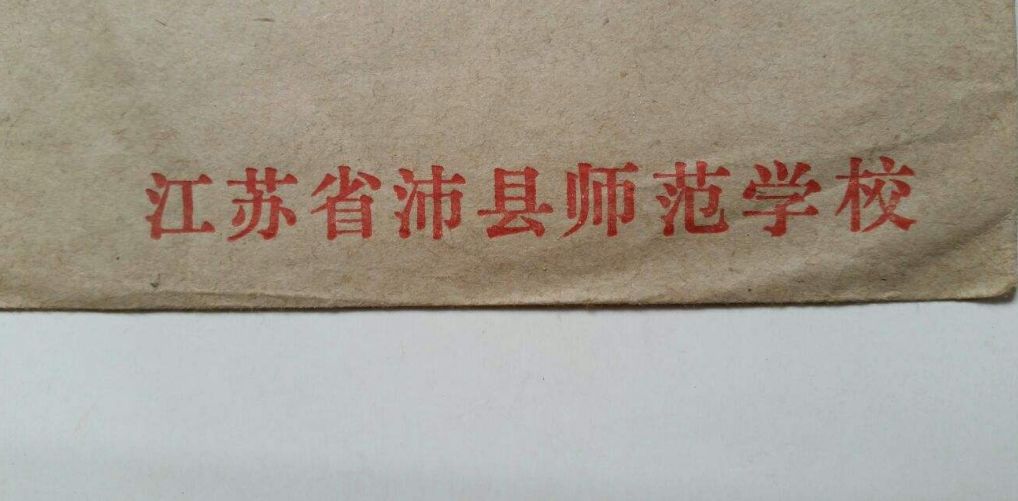 江苏省沛县师范学校